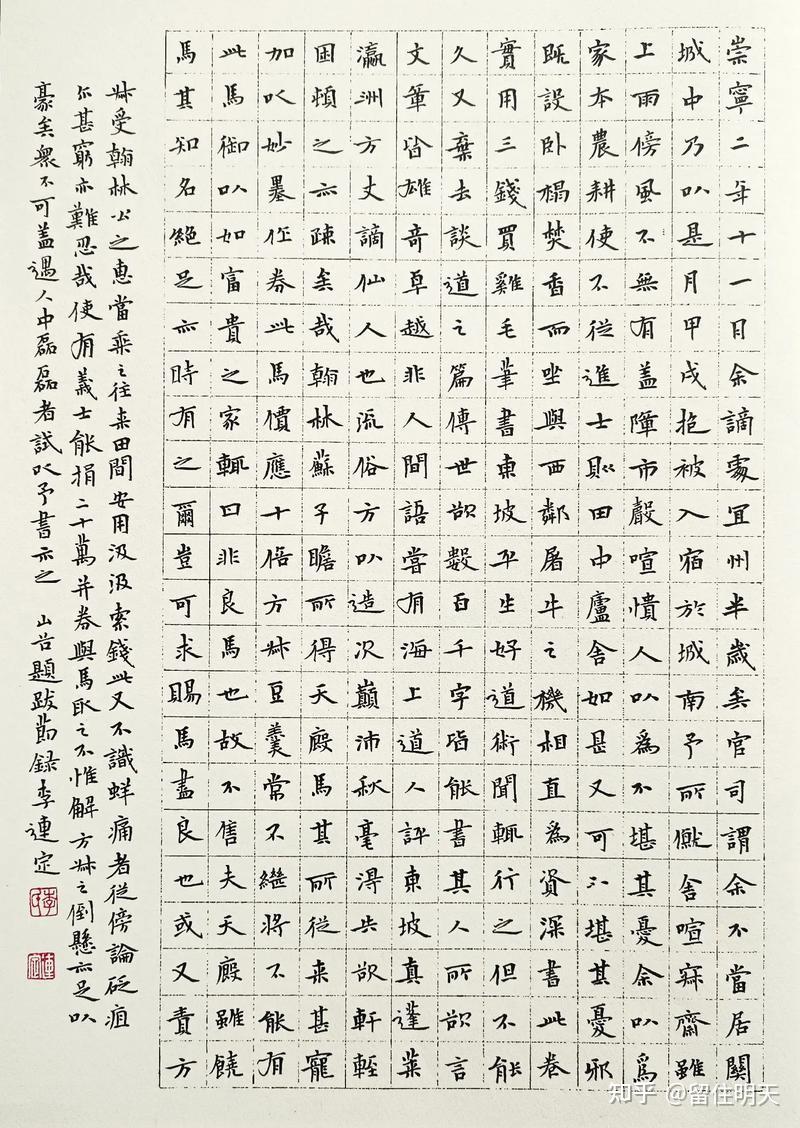 崇寧二年十一月余謫處宜州半歲矣官司謂余不當居關
城中乃以是月甲戌抱被入宿於城南予所僦舍喧寂齋雖
上雨傍風不無有蓋障市聲喧憒人以爲不堪其憂余以爲
家本農耕使不從進士則田中廬舍如是又可不堪其憂邪
既設卧榻焚香而坐與西鄰屠牛之機相直爲資深書此卷
實用三錢買雞毛筆書東坡平生好道術聞輒行之但不能
久又棄去談道之篇傳世欲數百千字皆能書其人所欲言
文章皆雄奇卓越非人間語嘗有海上道人評東坡真蓬萊
瀛洲方丈謫仙人也流俗方以造次顛沛秋毫得失欲軒輊
困頓之亦疎矣哉翰林蘇子瞻所得天廄馬其所從来甚寵
加以妙墨作券此馬價應十倍方叔豆羹常不繼將不能有
此馬御以如富貴之家輒曰非良馬也故不售夫天廄雖饒
馬其知名絕足亦時有之爾豈可求賜馬盡良也或又責方
叔受翰林公之惠當乘之往来田間安用汲汲索錢此又不識蛘痛者從傍論砭疽
尔甚窮亦難忍哉使有義士能捐二十萬并券與馬取之不惟解方叔之倒懸亦足以
豪矣衆不可蓋遇人中磊磊者試以予書示之 山谷題跋節録李連定
知乎 @留住明天